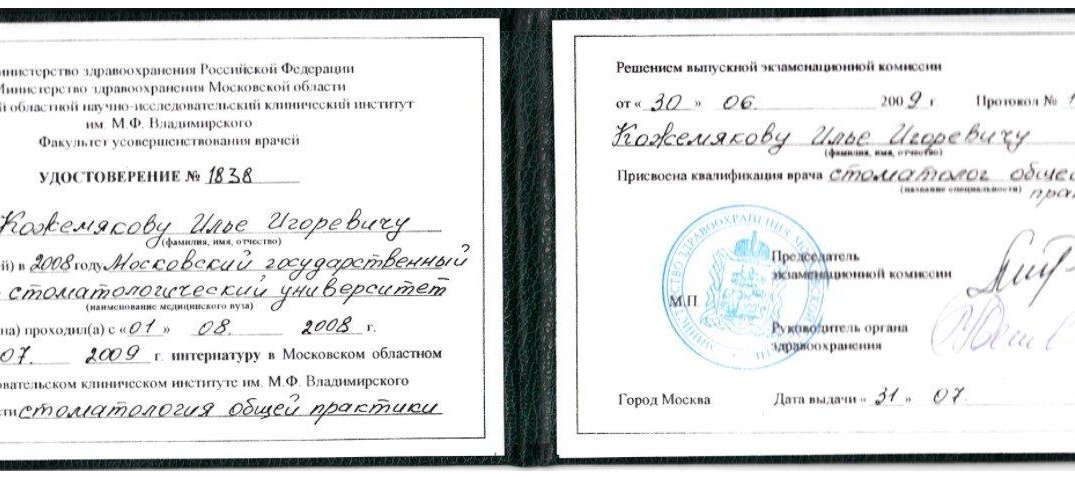 инистерство здравоохранения Российской Федерации
Министерство здравоохранения Московской области
й областной научно-исследовательский клинический институт
им. М.Ф. Владимирского
Факультет усовершенствования врачей
УДОСТОВЕРЕНИЕ № 1838
Кожемякову Илье Игоревичу
(фамилия, имя, отчество)
й) в 2008 году Московский государственный
стоматологический университет
(наименование медицинского вуза)
на) проходил(а) с « 01 » 08. 2008 г.
07. 2009 г. интернатуру в Московском областном
овательском клиническом институте им. М.Ф. Владимирского
сти стоматология общей практики
Решением выпускной экзаменационной комиссии
от « 30 » 06. 2009 г. Протокол № 1
Кожемякову Илье Игоревичу
(фамилия, имя, отчество)
Присвоена квалификация врача стоматолог общей
(название специальности) прак
Председатель
экзаменационной комиссии
М.П.
Руководитель органа
здравоохранения
Город Москва Дата выдачи « 31 » 07.